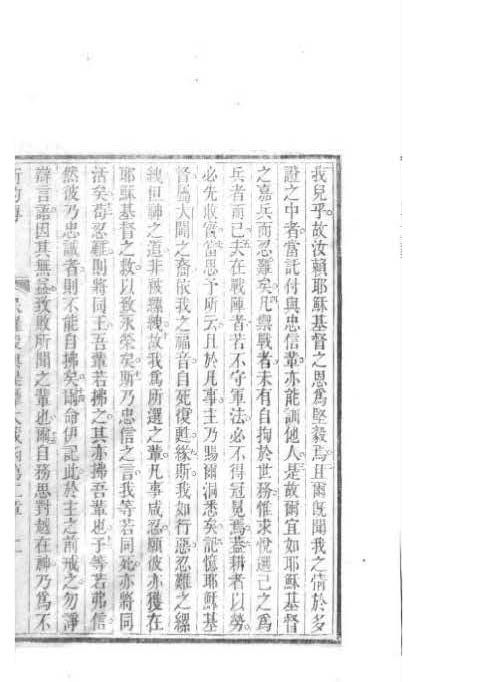 我兒乎故汝賴耶穌基督之恩爲堅毅焉且爾旣聞我之情於多
證之中者當託付與忠信輩亦能訓他人是故爾宜如耶穌基督
之嘉兵而忍難矣凡禦戰者未有自拘於世務惟求悅選己之爲
兵者而已夫在戰陣者若不守軍法必不得冠冕焉蓋耕者以勞
必先收實當思予所云且於凡事主乃賜爾洞悉矣記憶耶穌基
督倘大闢之裔依我之福音自死復甦緣斯我如行惡忍難之縲
絏但神之道非被縲絏故我爲所選之輩凡事咸忍願彼亦獲在
耶穌基督之救以致永榮矣斯乃忠信之言我等若同死亦將同
活矣苟忍難則將同王吾輩若拂之其亦拂吾輩也予等若弗信
然彼乃忠誠者則不能自拂矣爾命伊記此於主之前戒之勿諍
辯言語因其無益致敗所聞之輩也爾自務思對越在神乃爲不